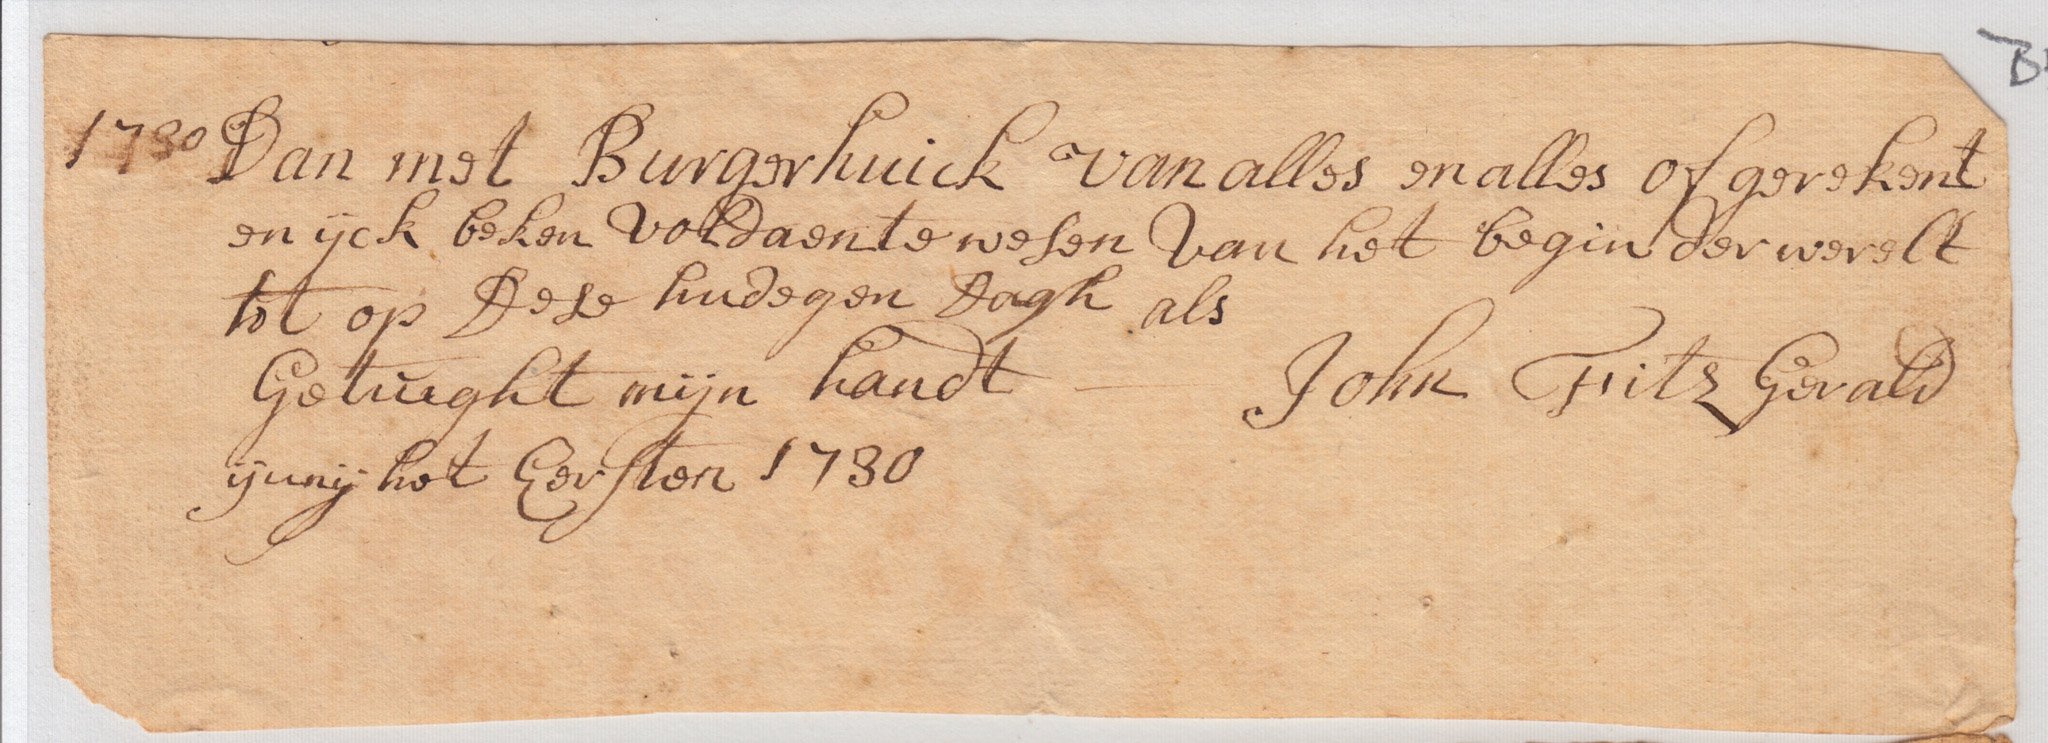 1730 Dan met Burgerhuick van alles en alles of gerekent
en ijck beken voldaen te wesen van het begin der werelt
tot op Dese hudegen Dagh als
Getuight mijn handt — John Fitz Gerald
ijunij het Eersten 1730